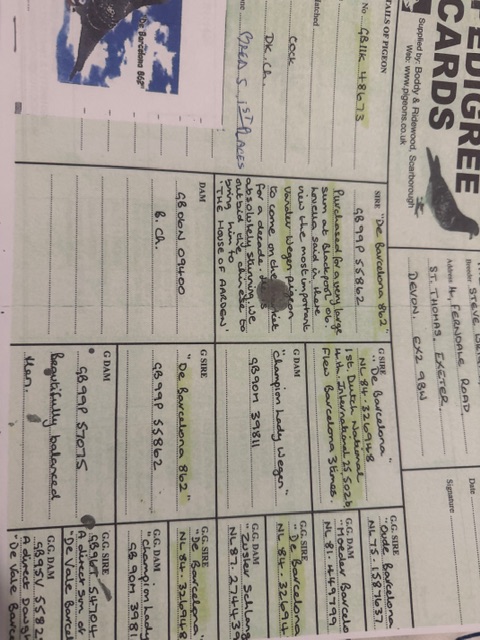 PEDIGREE
CARDS
Supplied by: Boddy & Ridewood, Scarborough
Web: www.pigeons.co.uk
Breeder STEVE
Address 14, FERNDALE ROAD
ST. THOMAS EXETER.
DEVON. EX2 9BW
Date
Signature
DETAILS OF PIGEON
No GB11K 48673
Hatched
COCK
DK.Ch.
BRED 5, 1ST PLACES
"De Barcelona 862"
SIRE "De Barcelona 862"
GB99P 55862
Purchased for a very large
sum at Blackpool '06.
Louella said in there
view the most important
Vander Wegen pigeon
to come on the
for a decade.
absolutely stunning, we
outbid the chinese to
bring him to
'THE HOUSE OF AARDEN'
DAM
GB06N 09400
B. Ch.
G SIRE "De Barcelona"
NL 84. 326948
1st. Dutch National
4th. International 25,502b
Flew Barcelona 3 times.
G DAM
"Champion Lady Wegen"
GB90M 39811
G SIRE
"De Barcelona 862"
GB99P 55862
G DAM
GB99P 57075
Beautifully balanced
hen.
G.G. SIRE
"Oude Barcelona
NL 75. 1587637
G.G. DAM
"Moeder Barcelo
NL 81. 449799
G.G. SIRE
"De Barcelona
NL 84. 32694
G.G. DAM
"Zuster Schlang
NL 87. 274439
G.G. SIRE
"De Barcelona"
NL 84. 326948
G.G. DAM
"Champion Lady
GB 90M 3981
G.G. SIRE
GB96T 54704
A direct son of
"De Vale Barcel
G.G. DAM
GB95V 5582
A direct Daught
"De Vale Barce